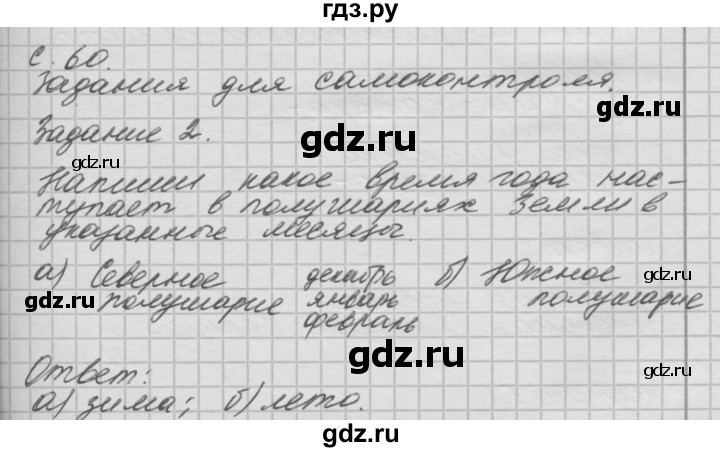 гдз.ру
с. 60.
Задания для самоконтроля.
gdz.ru
Задание 2.
gdz.ru
gdz.ru
Напиши какое время года нас-
gdz.ru
тупает в полушариях Земли в
указанные месяцы.
а) Северное декабрь б) Южное gdz.ru
gdz.ru полушарие январь полушарие
февраль
gdz.ru
gdz.ru
Ответ:
а) зима; б) лето.
gdz.ru
gdz.ru